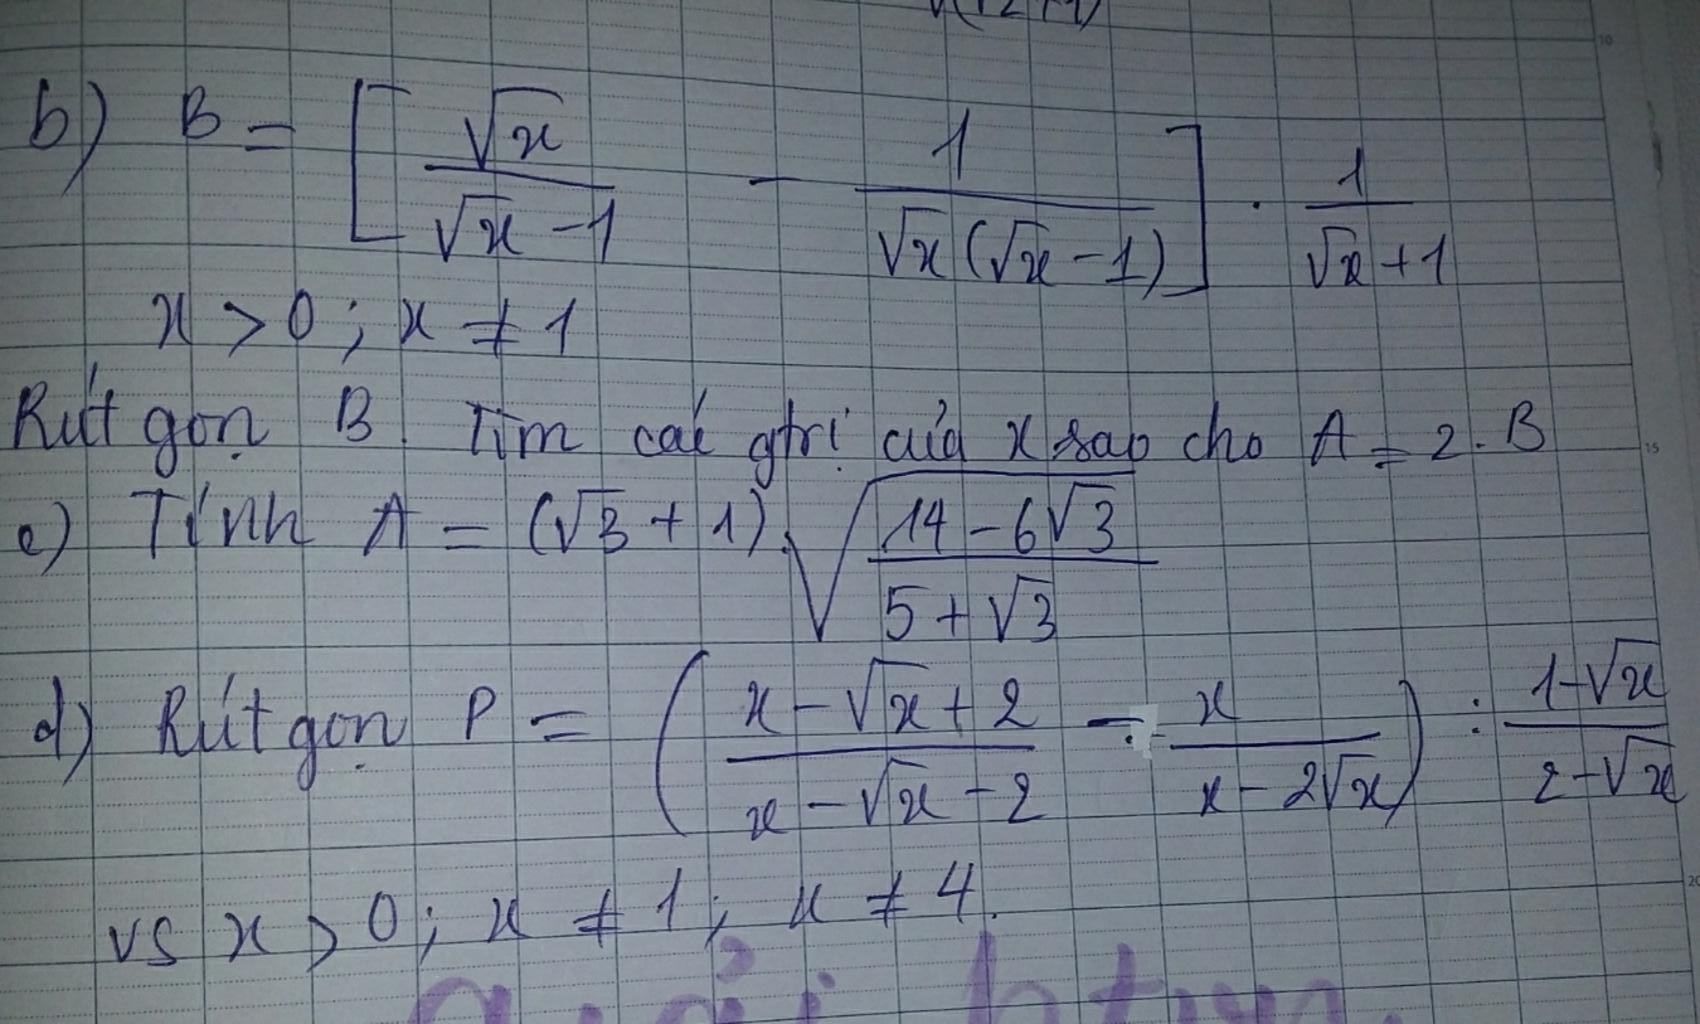 b) B = [ √x / (√x - 1) - 1 / (√x(√x - 1)) ] . 1 / (√x + 1)
x > 0 ; x ≠ 1
Rút gọn B. Tìm các gtrị của x sao cho A = 2.B
c) Tính A = (√3 + 1).√((14 - 6√3) / (5 + √3))
d) Rút gọn P = ( (x - √x + 2) / (x - √x - 2) - x / (x - 2√x) ) : (1 - √x) / (2 - √x)
vs x > 0 ; x ≠ 1 ; x ≠ 4.